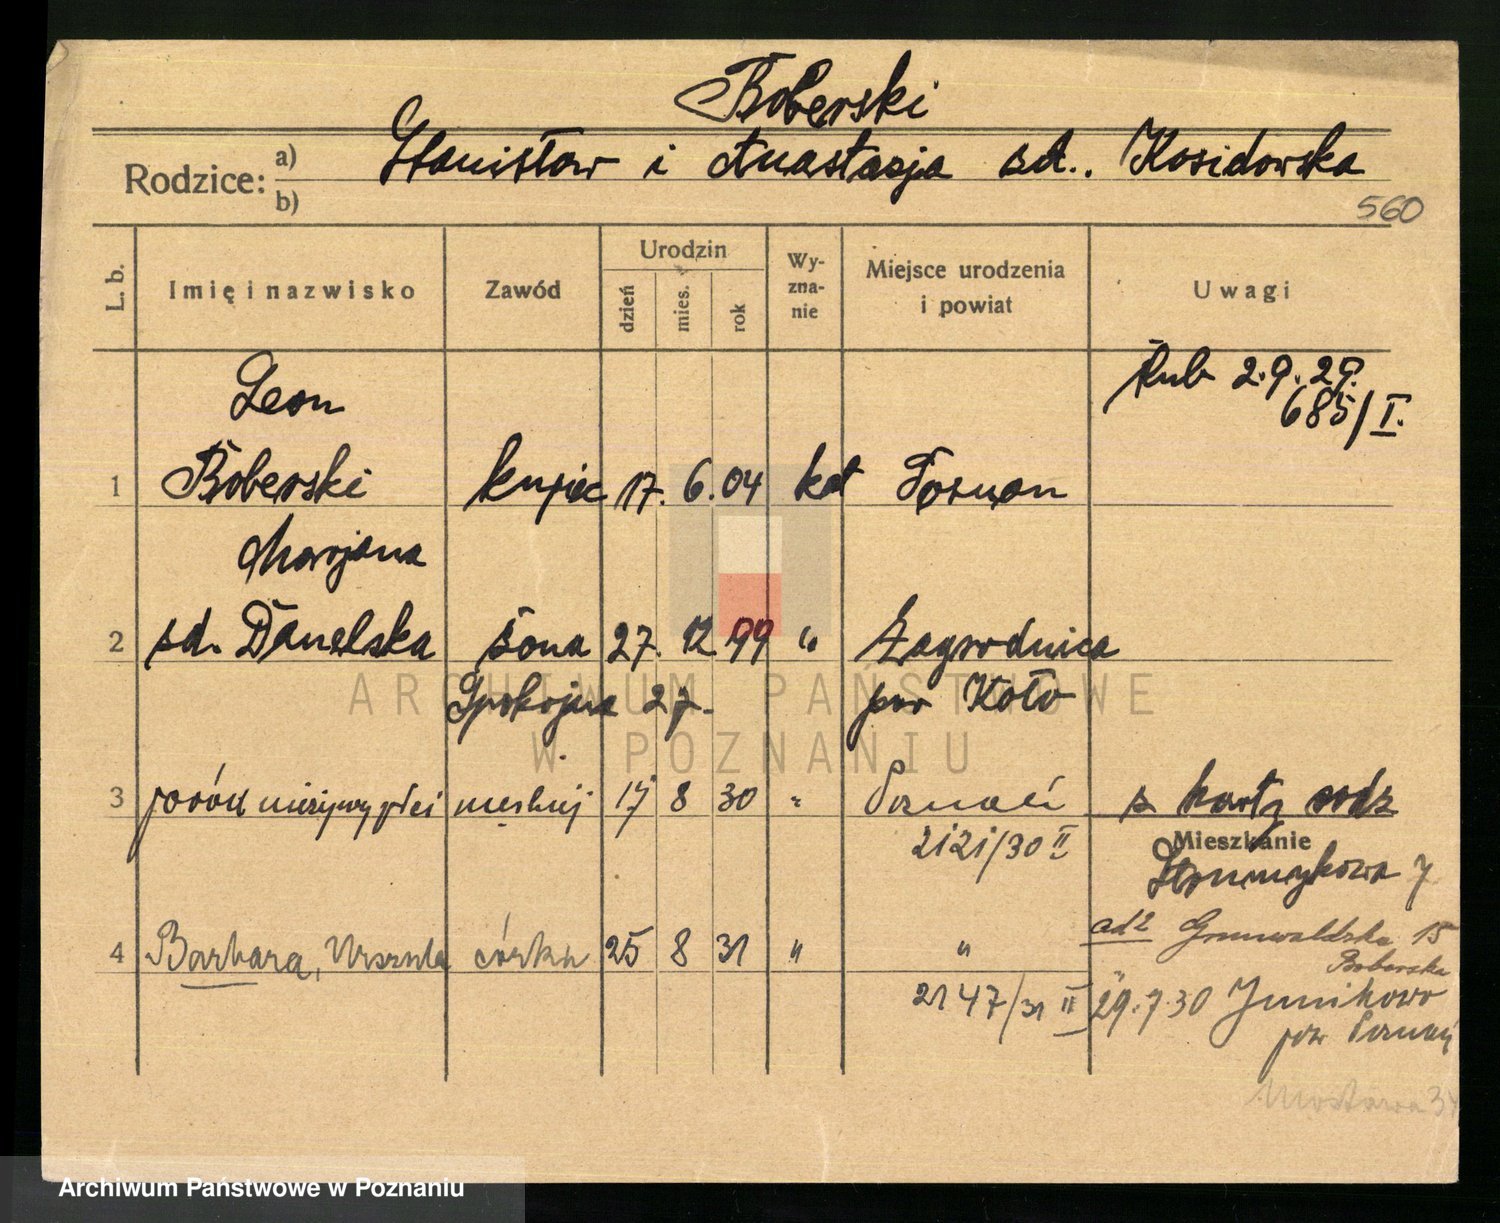 Boberski
Rodzice: a) Stanisław i Anastazja zd.. Kosidowska
b)
560
L. b. Imię i nazwisko Zawód Urodzin dzień mies. rok Wy-zna-nie Miejsce urodzenia i powiat Uwagi
Leon ślub 2.9.29.
685/I.
1 Boberski kupiec 17. 6. 04 kat Poznań
Marjana
2 zd. Danelska żona 27. 12. 99 " Zagrodnica
Spokojna 27. pow Koło
3 poród nieżywy płci męskiej 17 8 30 " Poznań z karty rodz
2121/30 II Mieszkanie
Strumykowa 7
ad2 Grunwaldzka 15
Boberska
4 Barbara, Urszula córka 25 8 31 " "
2147/31 II 29.7.30 Junikowo
pow Poznań
Mostowa 34
ARCHIWUM PAŃSTWOWE
W POZNANIU
Archiwum Państwowe w Poznaniu